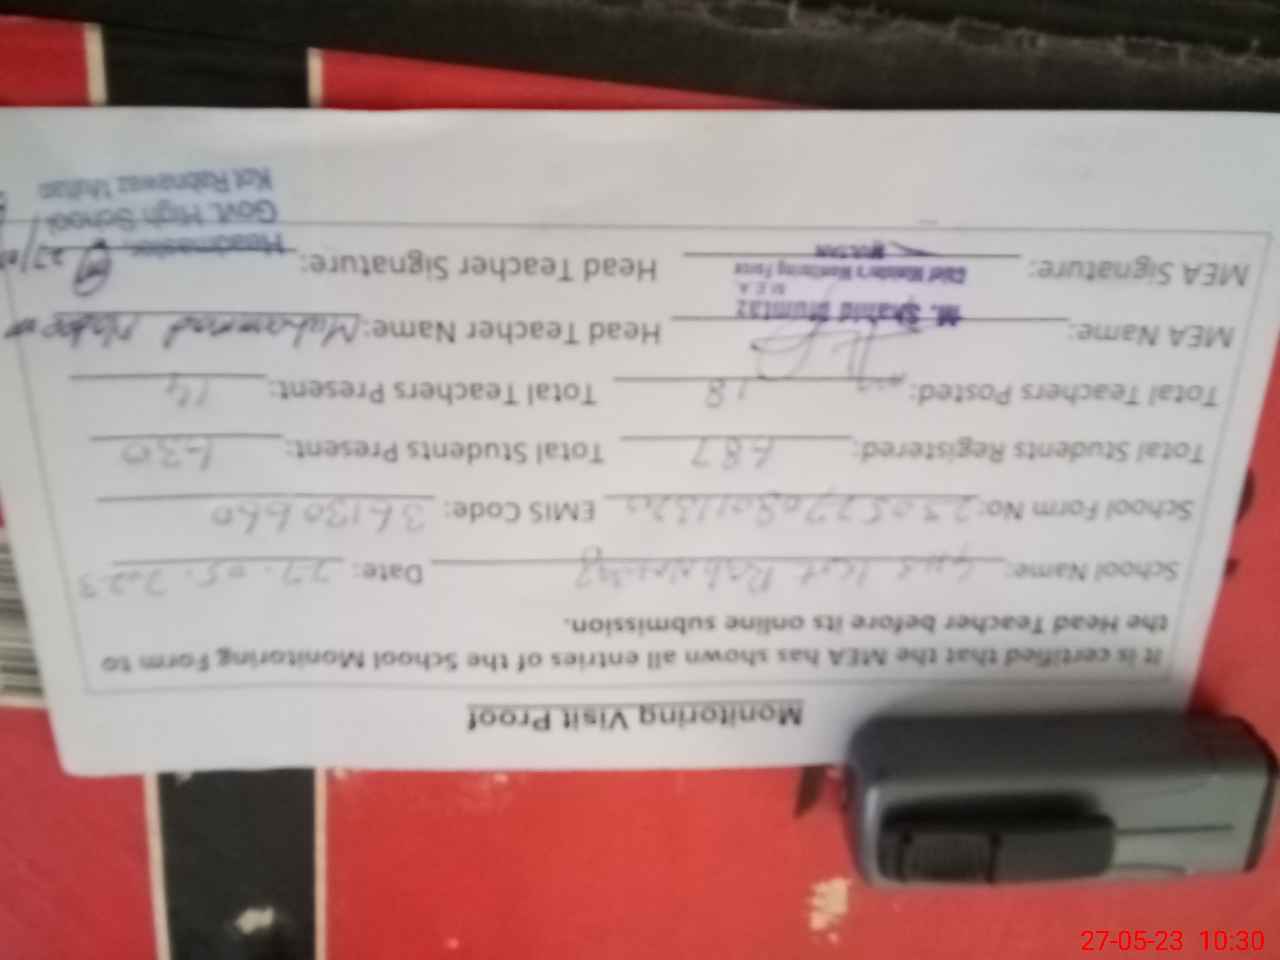 Monitoring Visit Proof
It is certified that the MEA has shown all entries of the School Monitoring Form to
the Head Teacher before its online submission.
School Name: GHS Kot Rabnawaz Date: 27.05.2023
School Form No: EMIS Code: 36130660
Total Students Registered: 687 Total Students Present: 630
Total Teachers Posted: 18 Total Teachers Present: 14
MEA Name: Head Teacher Name: Muhammad
M. Shahid Mumtaz
M.E.A
Chief Minister's Monitoring Force
MULTAN
MEA Signature: Head Teacher Signature:
Headmaster
Govt. High School
Kot Rabnawaz Multan
27-05-23 10:30